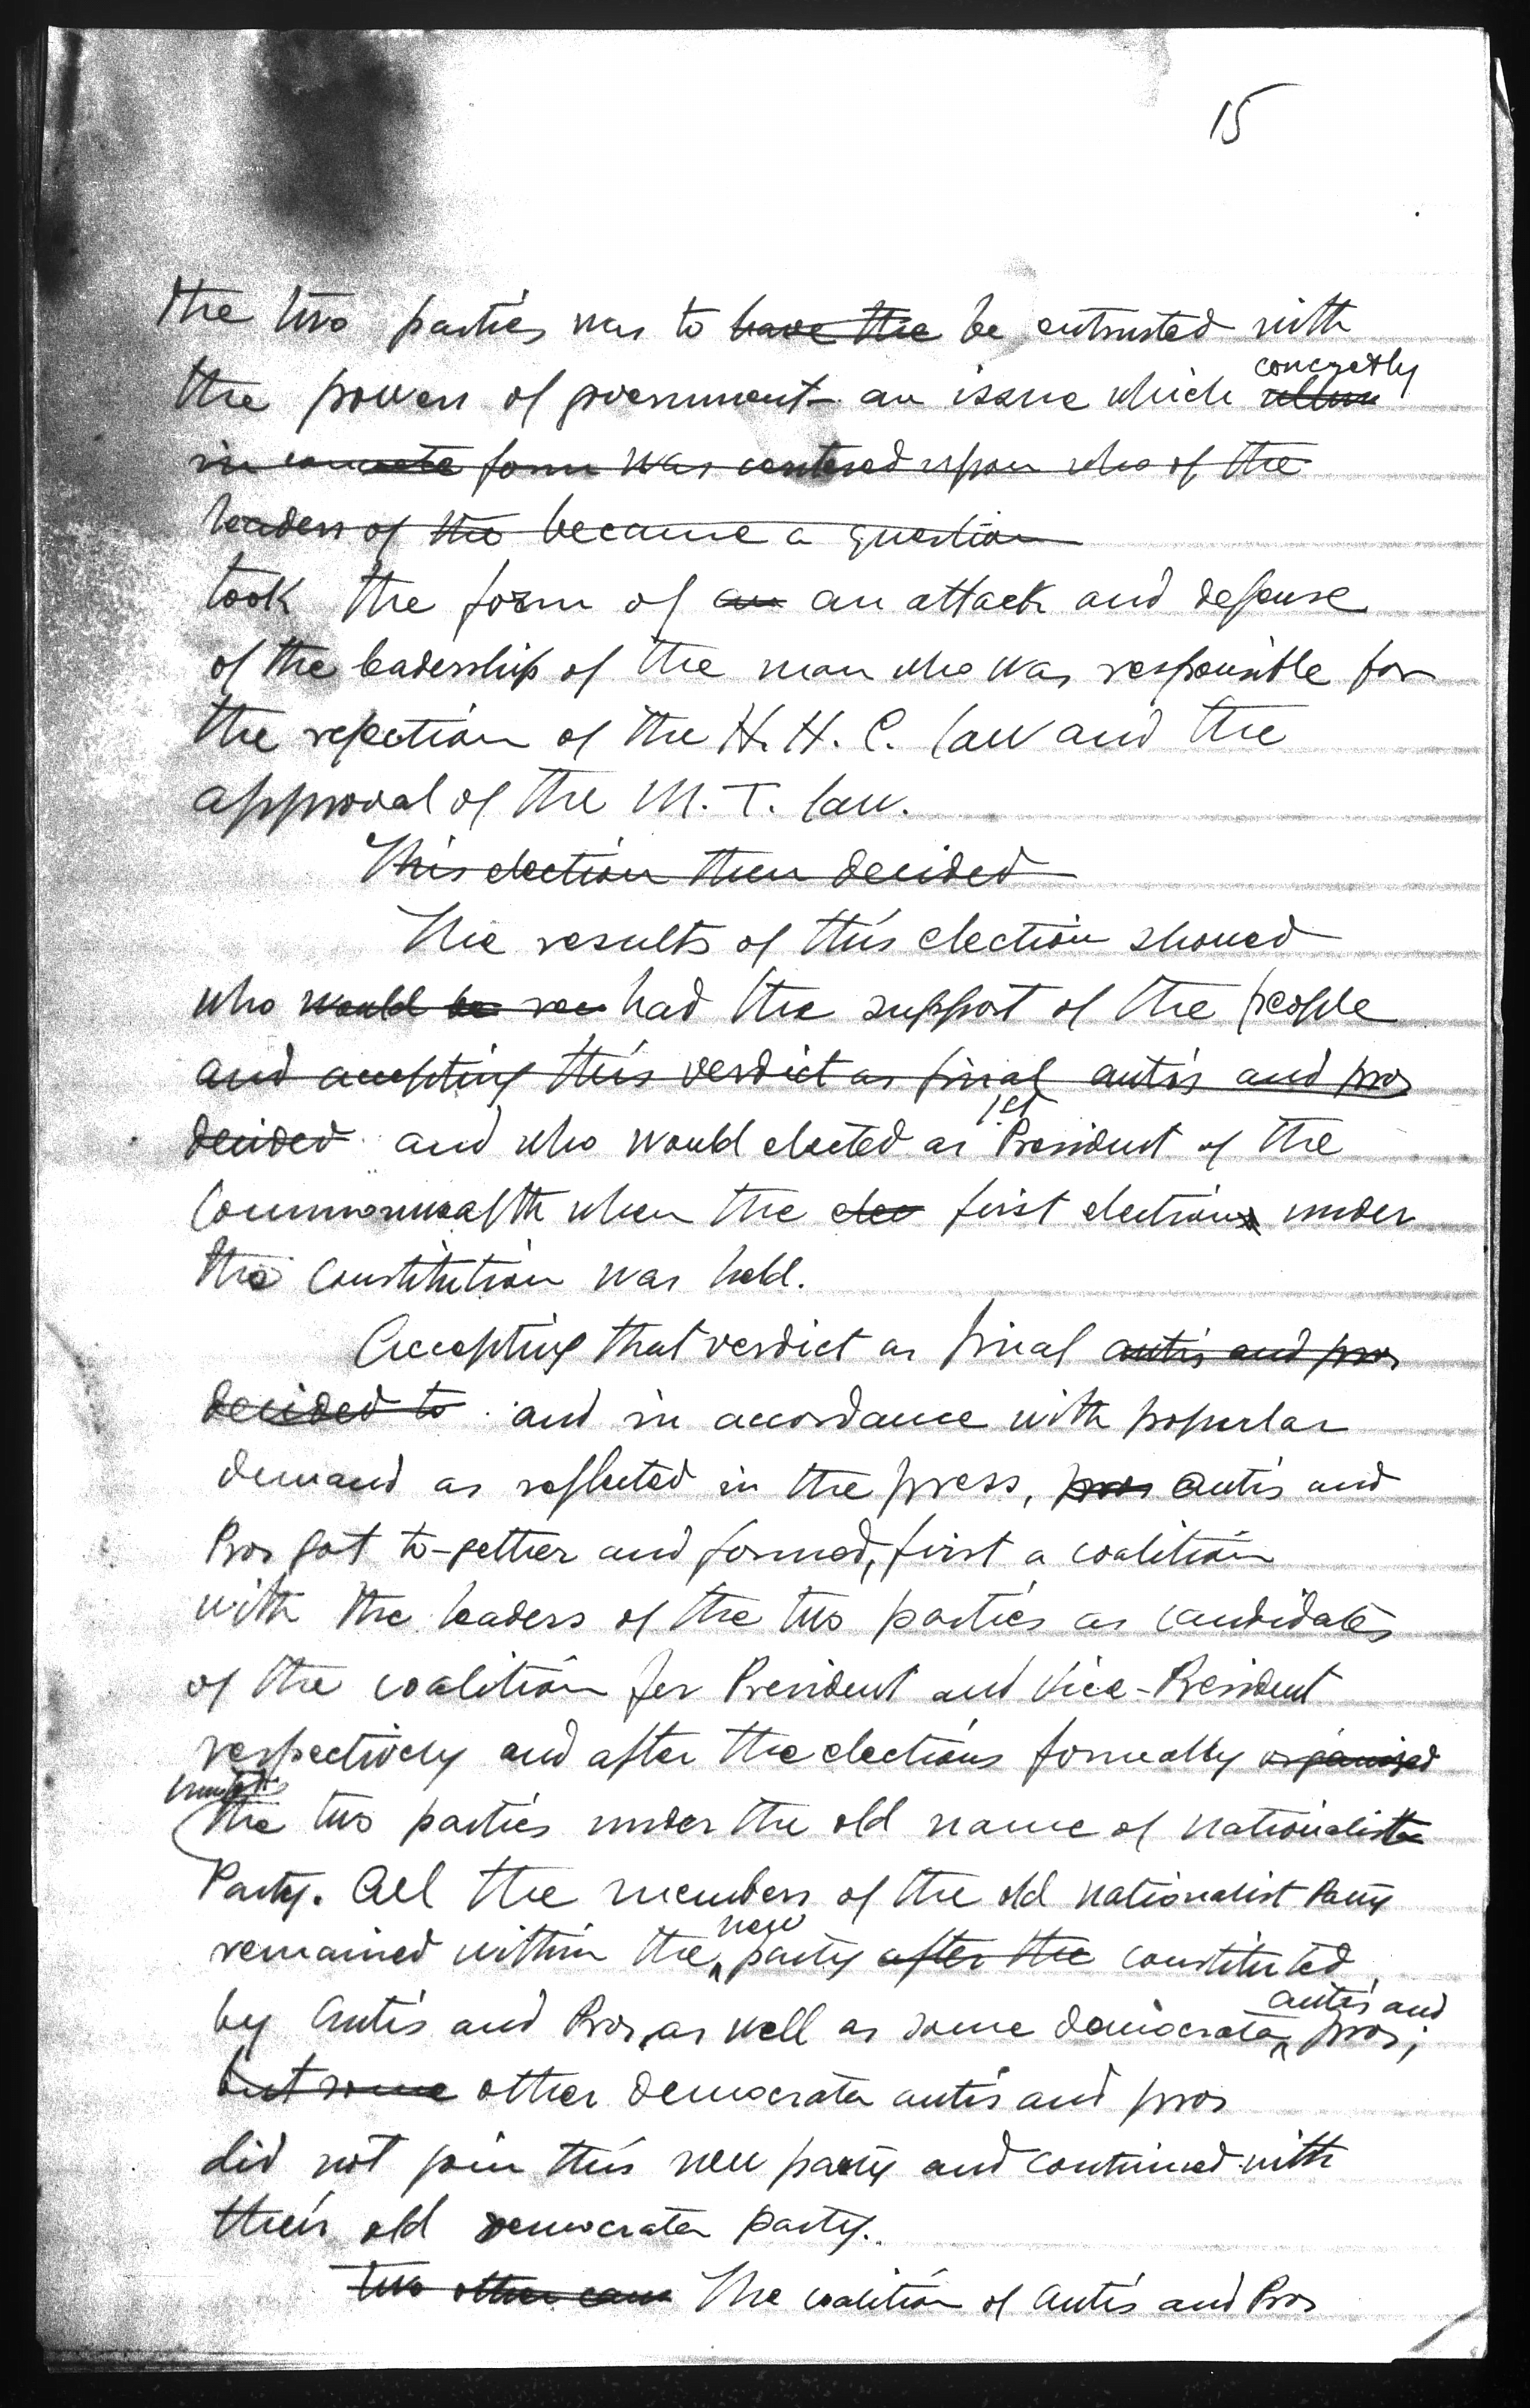 15
the two parties was to have the be entrusted with
concretly
the powers of government - an issue which
in concrete form was centered upon who of the
leaders of the became a question
took the form of an an attack and defense
of the leadership of the man who was responsible for
the rejection of the H. H. C. law and the
approval of the M. T. law.
This election then decided
The results of this election showed
who would be had the support of the people
and accepting this verdict as final antis and pros
1st
decided and who would elected as President of the
Commonwealth when the elec first election under
the Constitution was held.
Accepting that verdict as final antis and pros
decided to and in accordance with popular
demand as reflected in the press, pros Antis and
Pros got to-gether and formed, first a coalition
with the leaders of the two parties as candidates
of the coalition for President and Vice-President
respectively and after the elections formally organized
the two parties under the old name of Nationalista
Party. All the members of the old Nationalist Party
new
remained within the party after the constituted
antis and
by Antis and Pros, as well as some democrata pros;
but some other democrata antis and pros
did not join this new party and continued with
their old democrata party.
two other The coalition of Antis and Pros